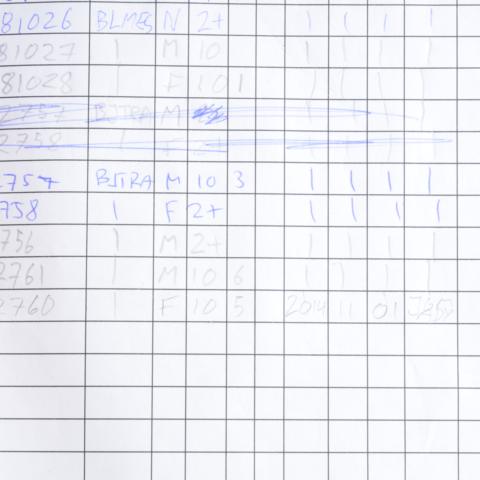 81026 BLMES N 2+ | | | |
81027 | M 10 | | | |
81028 | F 10 1 | | | |
2757 BJTRA M
2758 |
2757 BJTRA M 10 3 | | | |
758 | F 2+ | | | |
756 | M 2+ | | | |
2761 | M 10 6 | | | |
2760 | F 10 5 2014 11 01